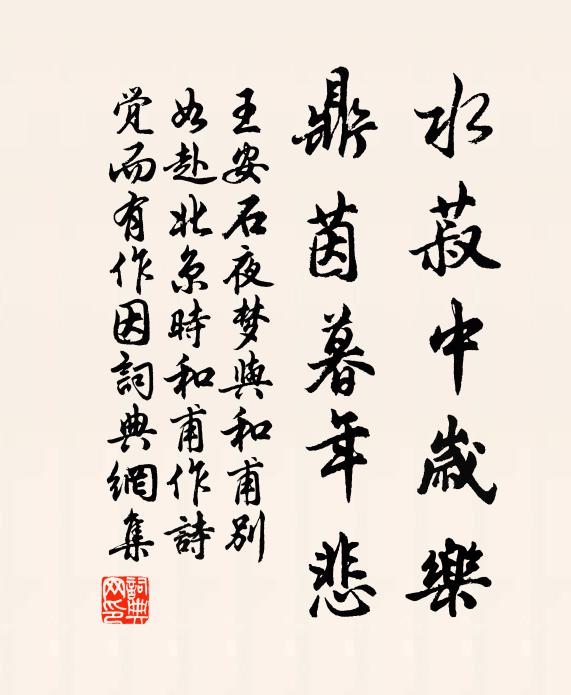 水菽中歲樂
鼎茵暮年悲
王安石夜梦與和甫別
如赴北京時和甫作詩
觉而有作因詞典網集
詞典网印